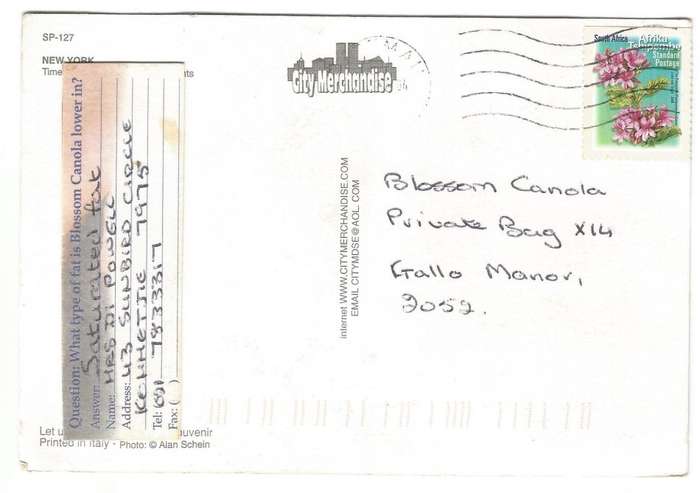 SP-127
NEW YORK
City Merchandise
South Africa
Standard
Postage
Question: What type of fat is Blossom Canola lower in?
Answer: Saturated fat
Name: MRS DI POWELL
Address: 43 SUNBIRD CIRCLE
7975
Tel: 7833317
Fax: ( )
internet WWW.CITYMERCHANDISE.COM
EMAIL CITYMDSE@AOL.COM
Blossom Canola
Private Bag X14
Gallo Manor,
2052.
Printed in Italy • Photo: © Alan Schein